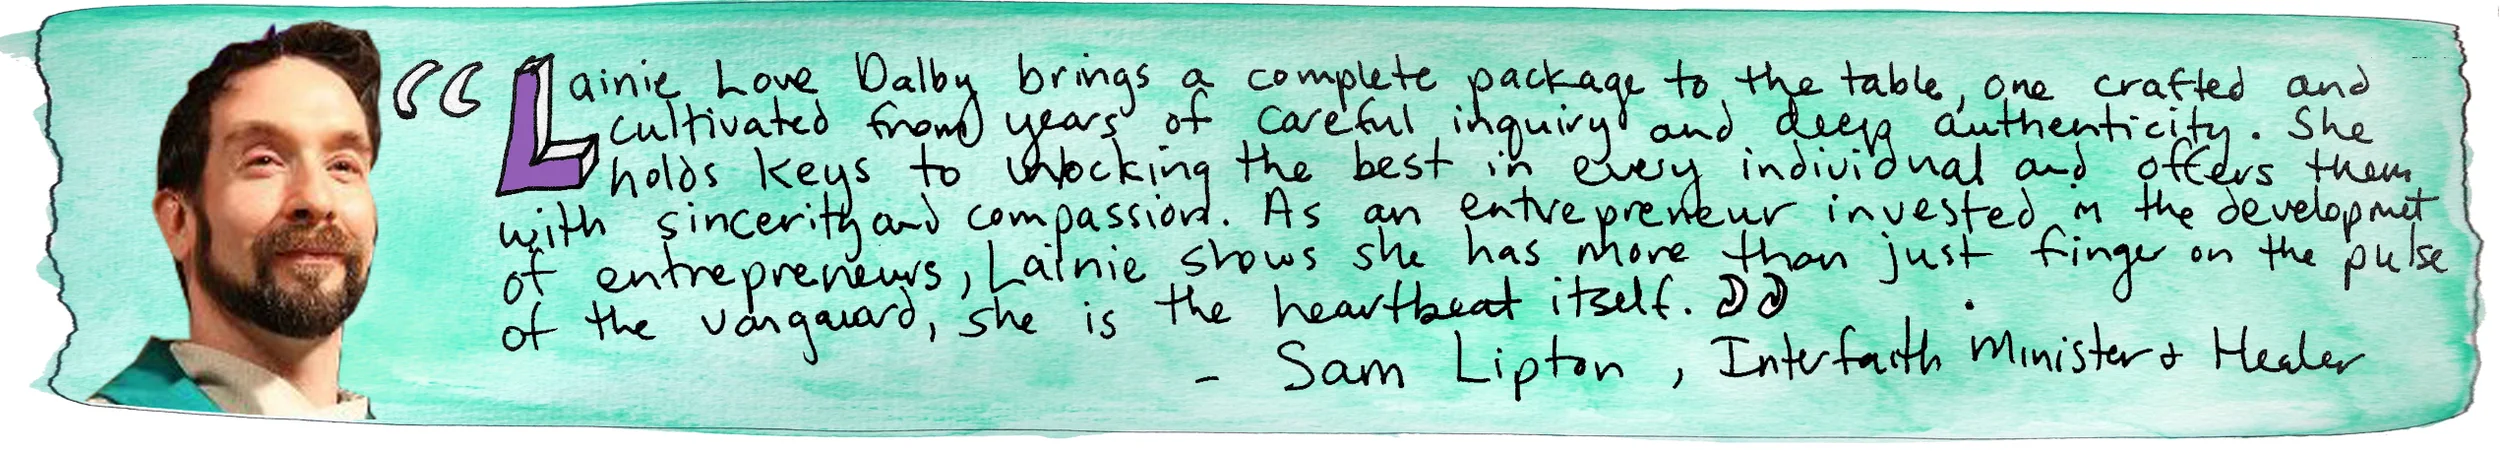 “Lainie Love Dalby brings a complete package to the table, one crafted and
cultivated from years of careful inquiry and deep authenticity. She
holds keys to unlocking the best in every individual and offers them
with sincerity and compassion. As an entrepreneur invested in the developmet
of entrepreneurs, Lainie shows she has more than just finger on the pulse
of the vanguard, she is the heartbeat itself.”
- Sam Lipton, Interfaith Minister & Healer